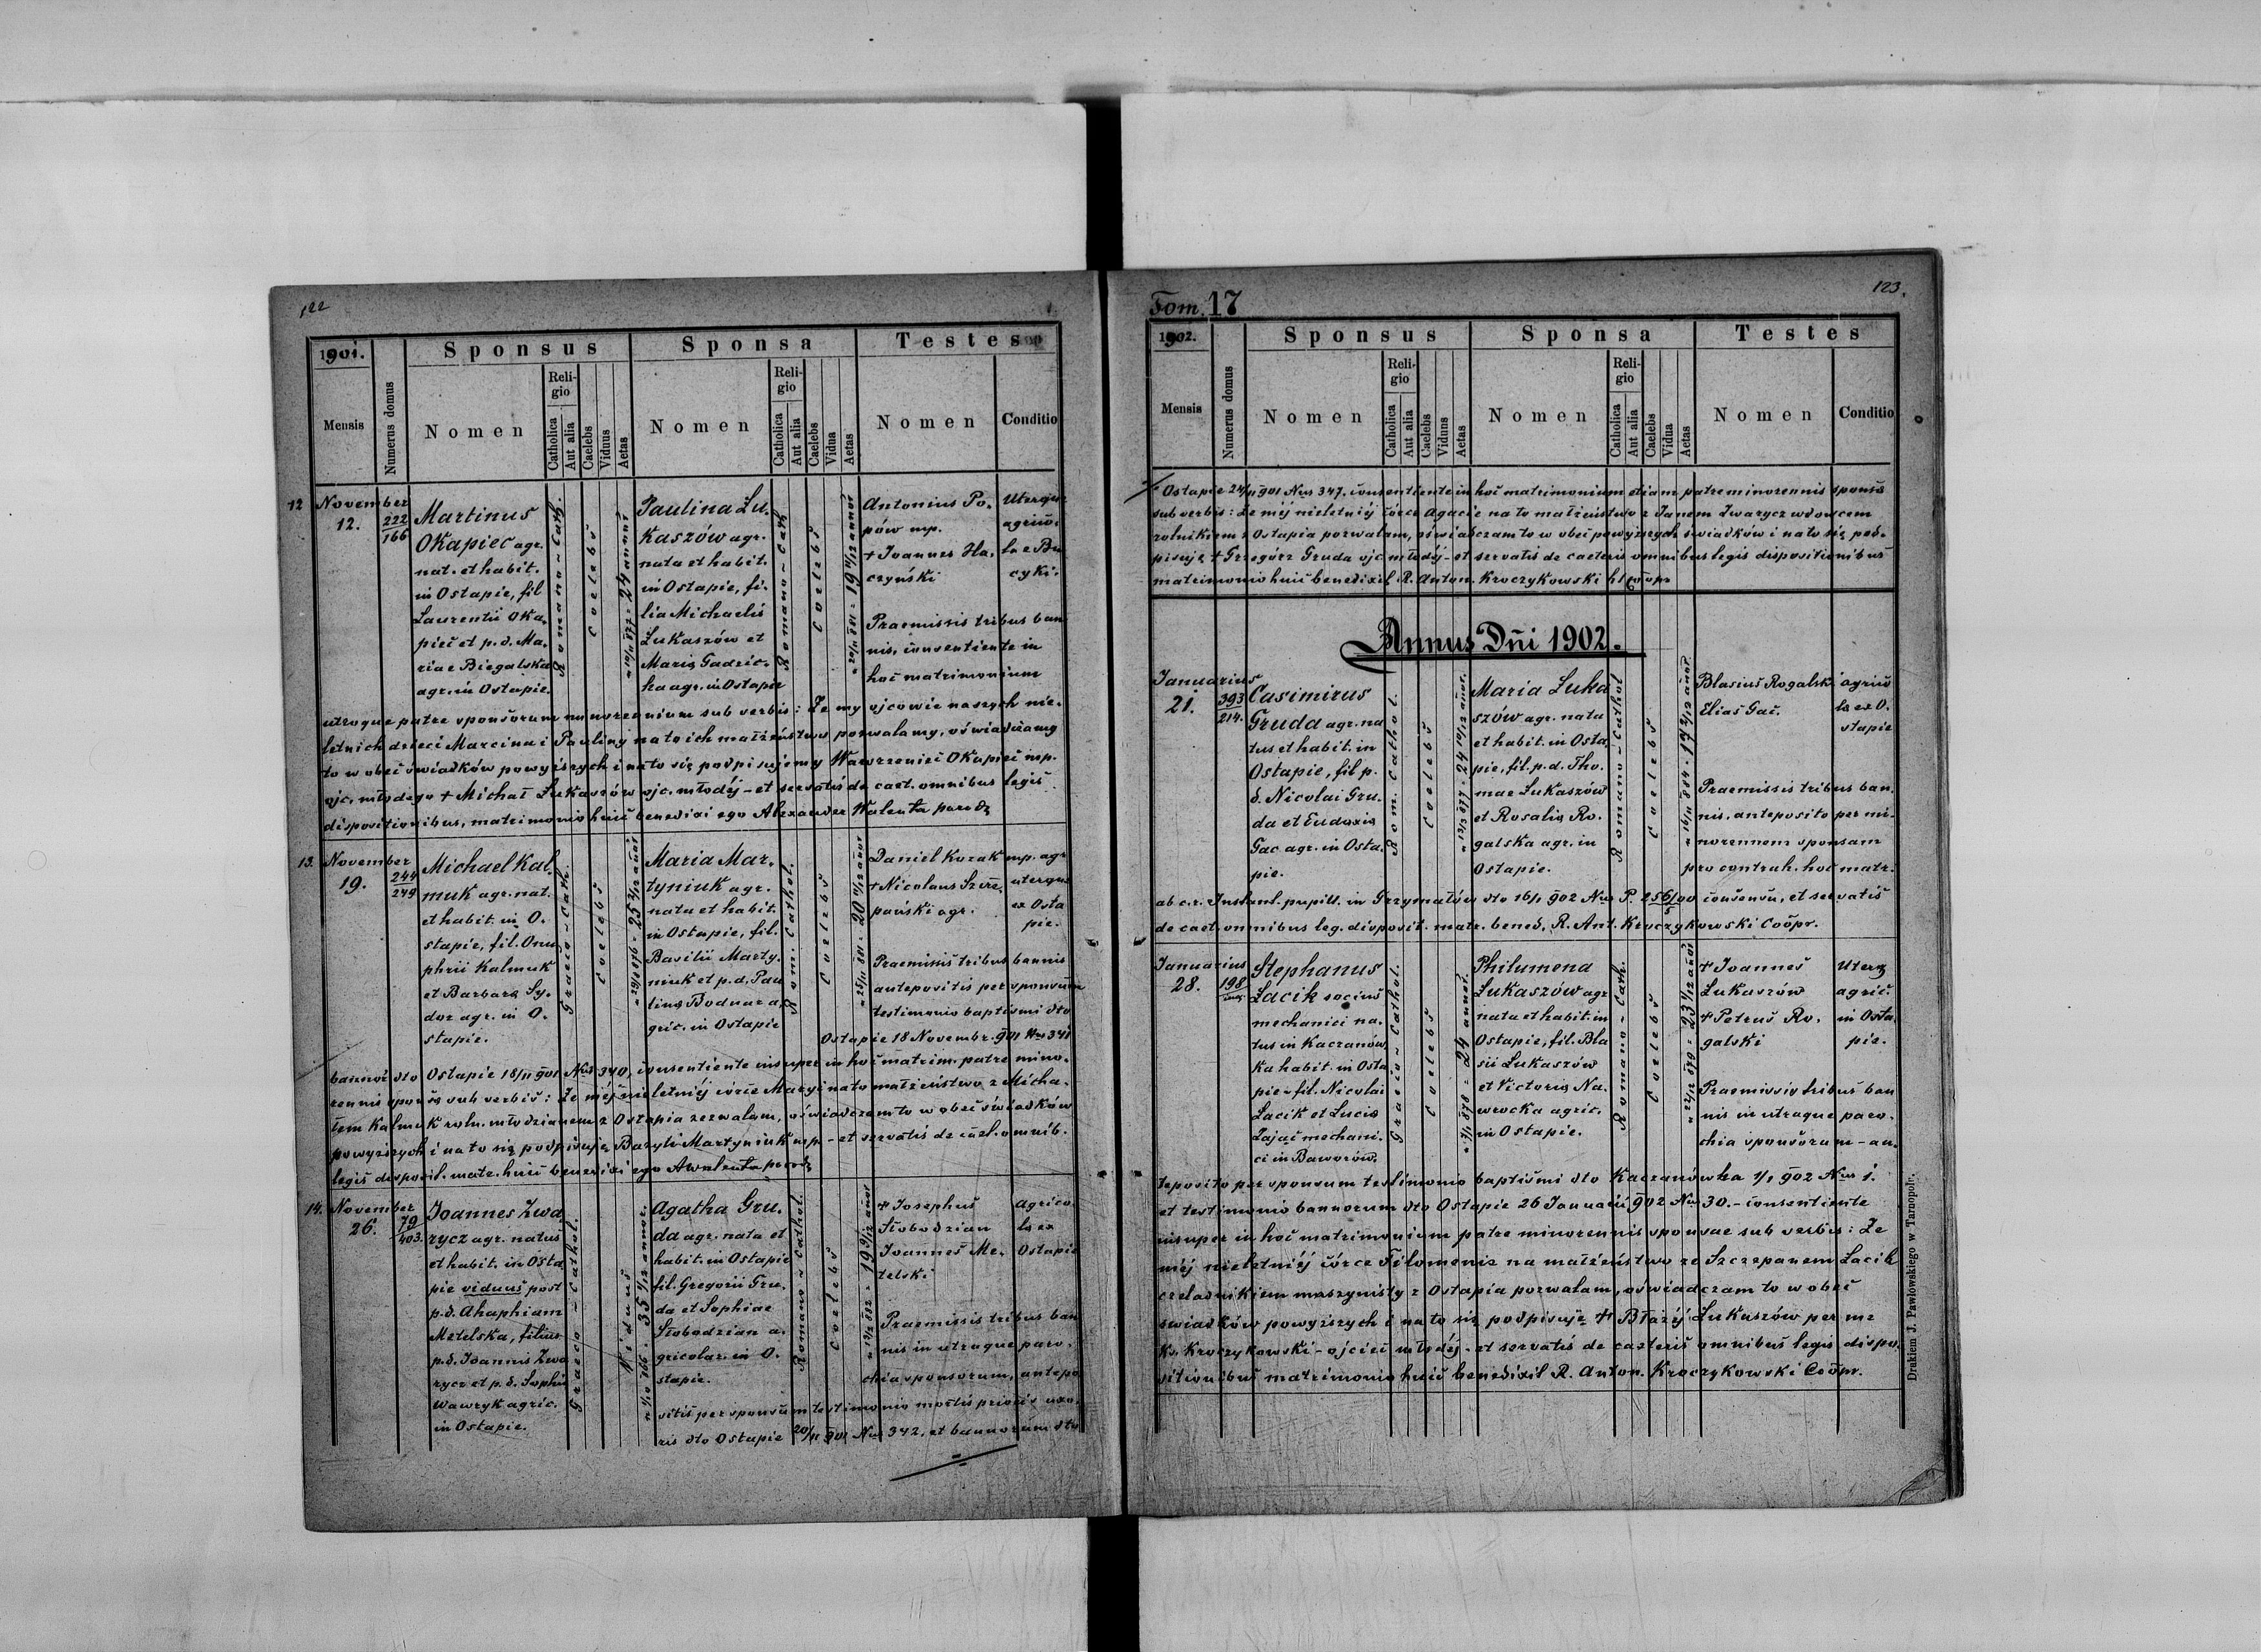 122
1901.
Sponsus
Sponsa
Testes
Mensis
Numerus domus
Nomen
Religio
Catholica
Aut alia
Caelebs
Viduus
Aetas
Nomen
Religio
Catholica
Aut alia
Caelebs
Vidua
Aetas
Nomen
Conditio
12
November
12.
222
166
Martinus
Okapiec agr.
nat. et habit.
in Ostapie, fil
Laurentii Oka,
pieč et p. d. Ma,
riae Biegalska
agr. in Ostapie.
Romano-Cath.
Coelebs
n 10/11 877 = 24 annor
Paulina Lu.
kaszów agr.
nata et habit.
in Ostapie, fi.
lia Michaelis
Lukaszów et
Maria Gadzic.
ka agr. in Ostapie
Romano-Cath
Coelebs
Antonius Po.
pów mp.
+ Ioannes Ha,
czyński
Uterque
agrico.
la e Bu
cyki.
Praemissis tribus ban
nis, consentiente in
hoc matrimonium
utroque patre sponsorum minorennium sub verbis: Że my ojcowie naszych nie.
letnich dzieci Marcina i Pauliny na to ich małżeństwo pozwalamy, oświadczamy
to w obec świadków powyższych i na to się podpisujemy Wawrzeniec Okapiec mp.
ojc. młodego + Michał Lukaszów ojc. młodéj - et servatis de caet. omnibus legis
dispositionibus, matrimonio huic benedixi ego Alexander Walenta paroch
13.
November
19.
244
249
Michael Kal,
muk agr. nat.
et habit. in O.
stapie, fil. Onu
phrii Kalmuk
et Barbara Sy.
dor agr. in O.
stapie.
Graeco-Cath.
Coelebs
Maria Mar.
tyniuk agr.
nata et habit.
in Ostapie, fil.
Basilii Marty.
niuk et p. d. Pau
lina Bodnar a.
gric. in Ostapie
Rom. Cathol.
Coelebs
Daniel Kozak mp. agr
+ Nicolaus Szcze,
pański agr.
uterque
ex Osta
pie.
Praemissis tribus bannis
antepositis per sponsum
testimonio baptismi dto
Ostapie 18 Novembr. 901 Nus 341
bannor dto Ostapie 18/11 901 Nus 340, consentiente insuper in hoc matrim. patre mino.
rennis sponsa sub verbis: Że méj nieletniéj córce Maryi na to małżeństwo z Micha.
łem Kalmuk roln. młodzianem z Ostapia zezwalam, oświadczam to w obec świadków
powyższych i na to się podpisuję Bazyli Martyniuk mp - et servatis de caet. omnib.
legis disposit. matr. huic benedixi ego AWalenta paroch
14.
November
26.
79
403.
Ioannes Zwa
rycz agr. natus
et habit. in Osta
pie viduus post
p. d. Ahaphiam
Metelska, filius
p. d. Ioannis Zwa
rycz et p. d. Sophia
Wawryk agric.
in Ostapie.
Graeco-Cathol.
Viduus
Agatha Gru.
da agr. nata et
habit. in Ostapie
fil. Gregorii Gru.
da et Sophiae
Słobodzian a.
gricolar. in O.
stapie.
Romano-Cathol.
Coelebs
+ Iosephus
Słobodzian
Ioannes Me.
telski
agrico
la ex
Ostapie
Praemissis tribus ban
nis in utraque paro.
chia sponsorum, antepo
sitis per sponsum testimonio mortis prioris uxo.
ris dto Ostapie 20/11 901 Nus 342, et bannorum dto
Tom. 17
123.
1902.
Sponsus
Sponsa
Testes
Mensis
Numerus domus
Nomen
Religio
Catholica
Aut alia
Caelebs
Viduus
Aetas
Nomen
Religio
Catholica
Aut alia
Caelebs
Vidua
Aetas
Nomen
Conditio
Ostapie 24/11 901 Nus 347. consentiente in hoc matrimonium etiam patre minorennis sponsa
sub verbis: Że méj nieletniéj córce Agacie na to małżeństwo z Janem Zwarycz wdowcem
rolnikiem z Ostapia pozwalam, oświadczam to w obec powyższych świadków i na to się pod.
pisuję + Grzegórz Gruda ojc młodéj - et servatis de caeteris omnibus legis dispositionibus
matrimonio huic benedixit R. Anton. Kroczykowski Coopr
Annus Dñi 1902.
Ianuarius
21.
393
214.
Casimirus
Gruda agr. na
tus et habit. in
Ostapie, fil p.
d. Nicolai Gru.
da et Eudoxia
Gac agr. in Osta.
pie.
Rom. Cathol.
Coelebs
n 12/3 877 . 24 10/12 añor.
Maria Luka
szów agr. nata
et habit. in Osta
pie, fil. p. d. Tho.
mae Lukaszów
et Rosalia Ro.
galska agr. in
Ostapie.
Romano-Cathol
Coelebs
Blasius Rogalski
Elias Gač.
agrico
la ex O.
stapie
Praemissis tribus ban.
nis. anteposito per mi.
norennem sponsam
pro contrah. hoc matr.
ab c. r. Instant. pupill. in Grzymałów dto 16/1 902 Nro P. 256/00 consensu, et servatis
5
de caet. omnibus leg. disposit. matr. bened. R. Ant. Kroczykowski Coõpr.
Ianuarius
28.
198
Stephanus
Lacik socius
mechanici na.
tus in Kaczanów
ka habit. in Osta
pie - fil. Nicolai
Lacik et Lucia
Zając mechani.
ci in Baworów.
Graeco-Cathol.
Coelebs
n 7/1 878 = 24 annor.
Philumena
Lukaszów agr
nata et habit. in
Ostapie, fil. Bla
sii Lukaszów
et Victoria Na.
wrocka agric.
in Ostapie.
Romano-Cath.
Coelebs
n 22/12 879 = 23 1/12 añor
+ Ioannes
Lukaszów
+ Petrus Ro.
galski
Uterq
agric.
in Osta.
pie.
Praemissis tribus ban
nis in utraque paro.
chia sponsorum - an.
teposito per sponsum testimonio baptismi dto Kaczanówka 1/1 902 Nus 1.
et testimonio bannorum dto Ostapie 26 Ianuarii 902 Nus 30. - consentiente
insuper in hoc matrimonium patre minorennis sponsae sub verbis: Że
méj nieletniéj córce Filomenie na małżeństwo ze Szczepanem Lacik
czeladnikiem maszynisty z Ostapia pozwalam, oświadczam to w obec
świadków powyższych i na to się podpisuję + Błażéj Lukaszów per me
Ks. Kroczykowski - ojciec młodéj - et servatis de caeteris omnibus legis dispo.
sitionibus matrimonio huic benedixit R. Anton. Kroczykowski Coõpr.
Drukiem J. Pawłowskiego w Tarnopolu.